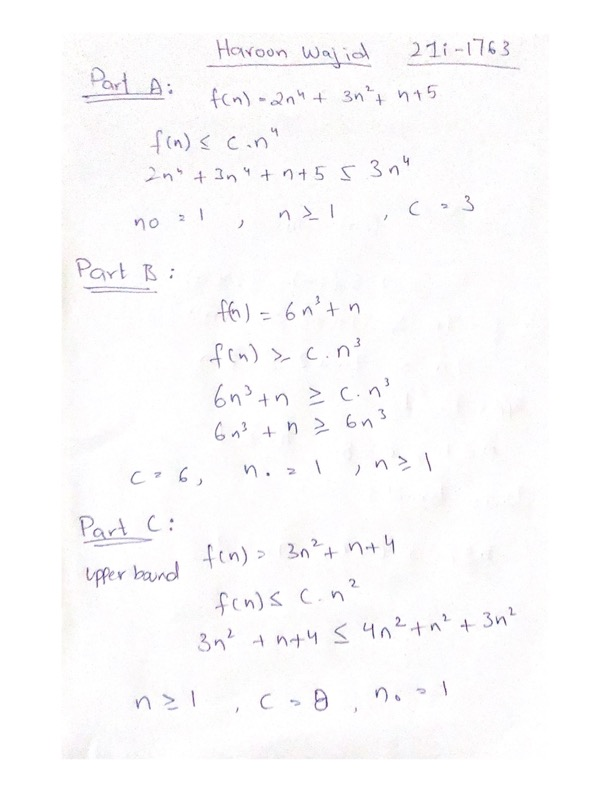 Haroon Wajid 21i-1763
Part A:
f(n) = 2n⁴ + 3n² + n+5
f(n) ≤ c.n⁴
2n⁴ + 3n⁴ + n+5 ≤ 3n⁴
no = 1 , n ≥ 1 , C = 3
Part B:
f(n) = 6n³ + n
f(n) ≥ c.n³
6n³ + n ≥ c.n³
6n³ + n ≥ 6n³
C = 6, n₀ = 1 , n ≥ 1
Part C:
f(n) = 3n² + n+4
upper bound
f(n) ≤ C.n²
3n² + n+4 ≤ 4n² + n² + 3n²
n ≥ 1 , C = 8 , n₀ = 1